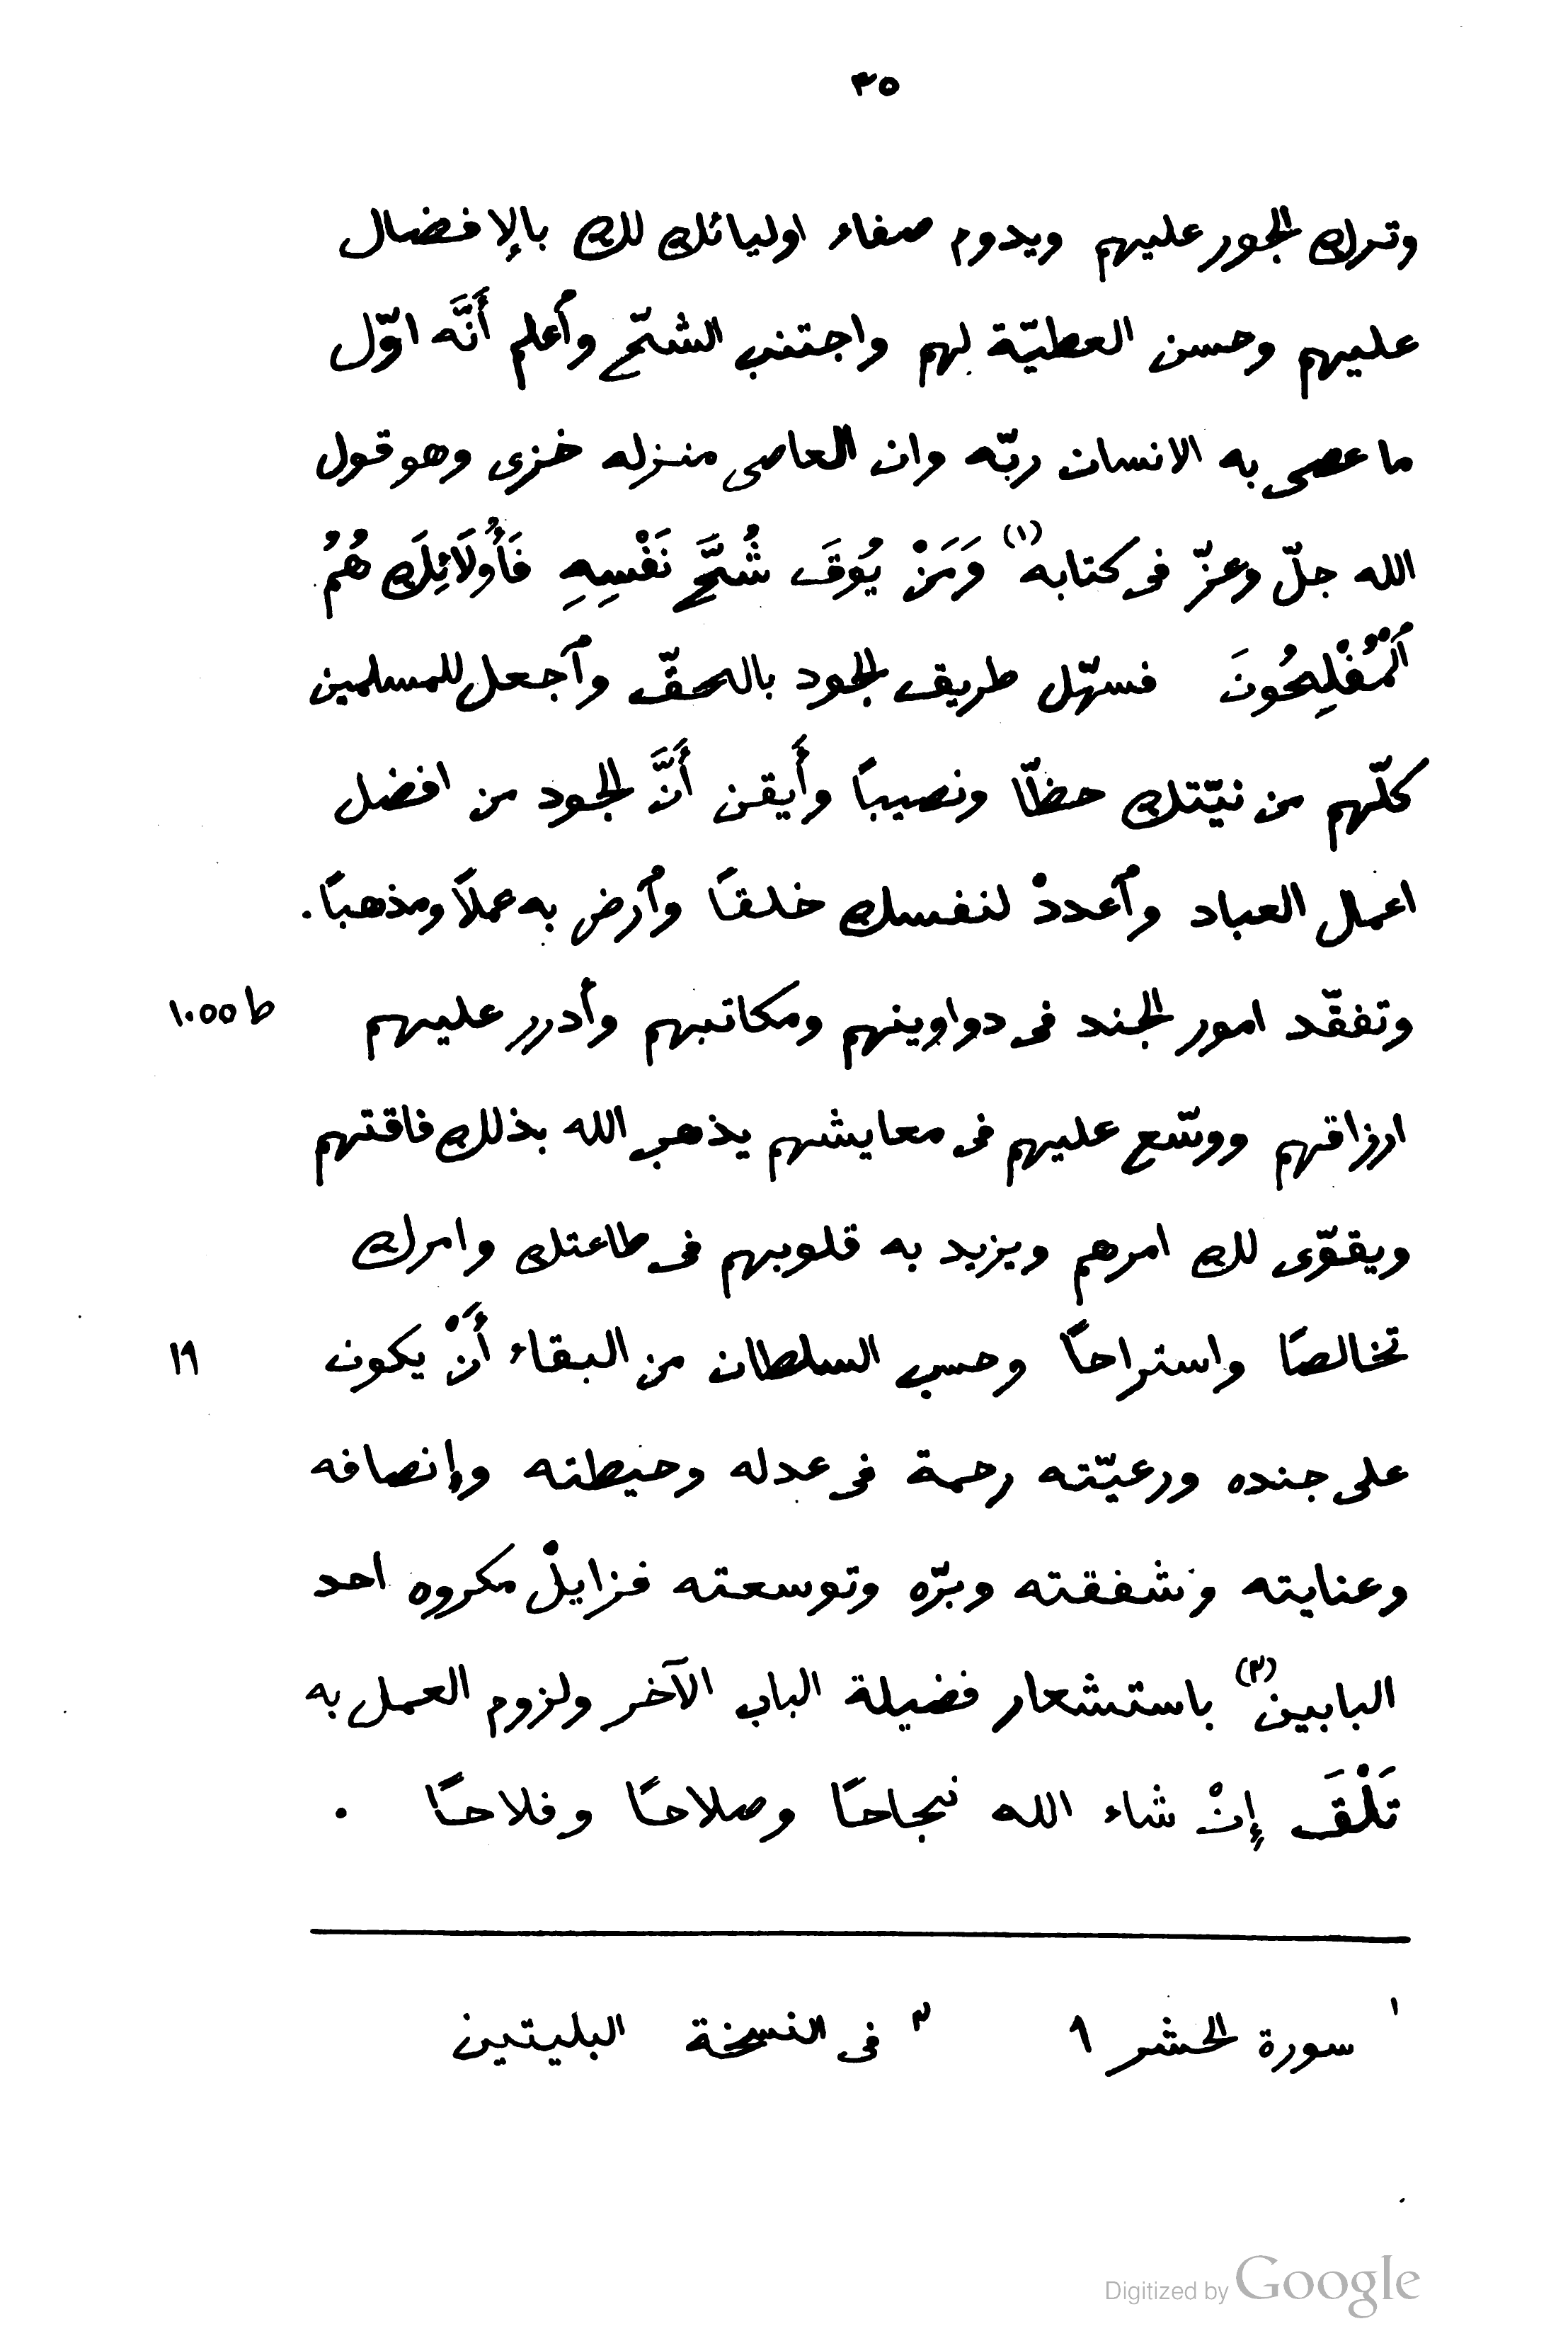 ٣٥
وترك الجور عليهم ويدوم صفاء اوليائك لك بالإفضال
عليهم وحسن العطيّة لهم واجتنب الشحّ وٱعلم أَنَّه اوّل
ما عصى به الانسان ربّه وان العاصى منزله خزى وهو قول
الله جلّ وعزّ فى كتابه (١) وَمَنْ يُوقَ شُحَّ نَفْسِهِ فَأُولَائِكَ هُمُ
ٱلْمُفْلِحُونَ فسهّل طريق الجود بالحقّ وٱجعل للمسلمين
كلّهم من نيّتك حظّا ونصيبًا وأَيقن أَنَّ الجود من افضل
اعمال العباد وٱعددْ لنفسك خلقًا وٱرض به عملاً ومذهبًا .
وتفقّد امور الجند فى دواوينهم ومكاتبهم وأدرر عليهم ط ١٠٥٥
ارزاقهم ووسّع عليهم فى معايشهم يذهب الله بذلك فاقتهم
ويقوّى لك امرهم ويزيد به قلوبهم فى طاعتك وامرك
تخالصًا واستراحًا وحسب السلطان من البقاء أَنْ يكون ١٩
على جنده ورعيّته رحمة فى عدله وحيطته وإنصافه
وعنايته وشفقته وبرّه وتوسعته فزايلْ مكروه احد
البابين (٢) باستشعار فضيلة الباب الآخر ولزوم العمل به
تَلْقَ إِنْ شاء الله نجاحًا وصلاحًا وفلاحًا .
١ سورة الحشر ٩ ٢ فى النسخة البليتين
Digitized by Google